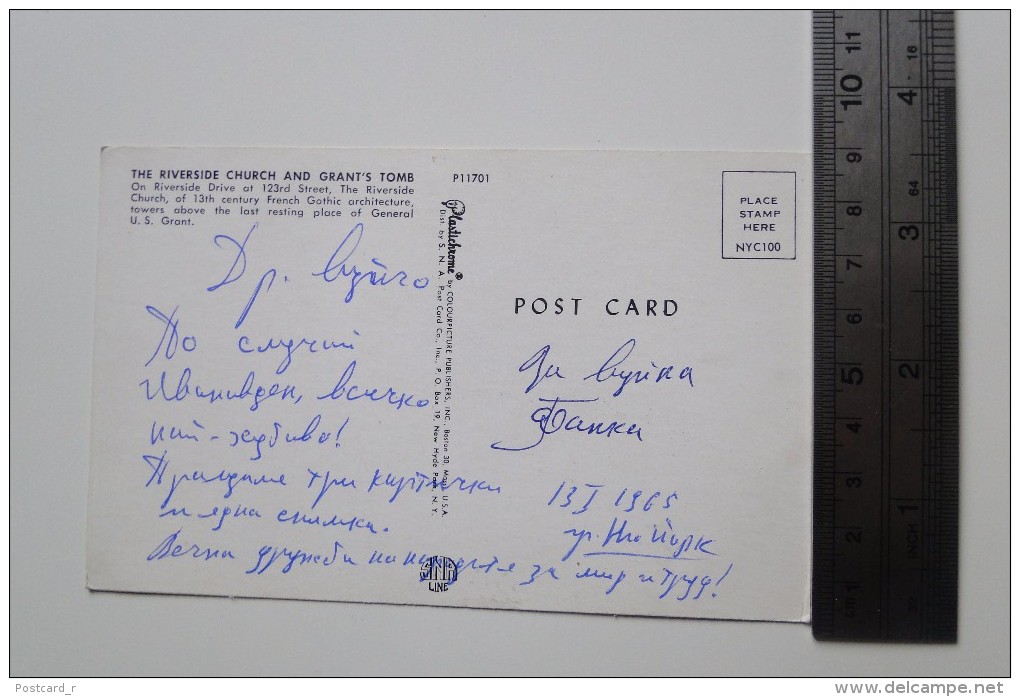 THE RIVERSIDE CHURCH AND GRANT'S TOMB
On Riverside Drive at 123rd Street, The Riverside
Church, of 13th century French Gothic architecture,
towers above the last resting place of General
U. S. Grant.
Др. вуйчо
По случай
Ивановден, всичко
най-хубаво!
Пращаме три картички
и една снимка.
Вечна дружба на народите за мир и труд!
P11701
Plastichrome® by COLOURPICTURE PUBLISHERS, INC., Boston 30, Mass. U.S.A.
Dist. by S. N. A. Post Card Co., Inc., P. O. Box 19, New Hyde Park, N. Y.
SNA
LINE
PLACE
STAMP
HERE
NYC100
POST CARD
За вуйна
Банка
13 I 1965
гр. Ню Йорк
11 10 9 8 7 6 5 4 3 2 1
cm
16 4 64 3 2 1
Postcard_r
www.delcampe.net